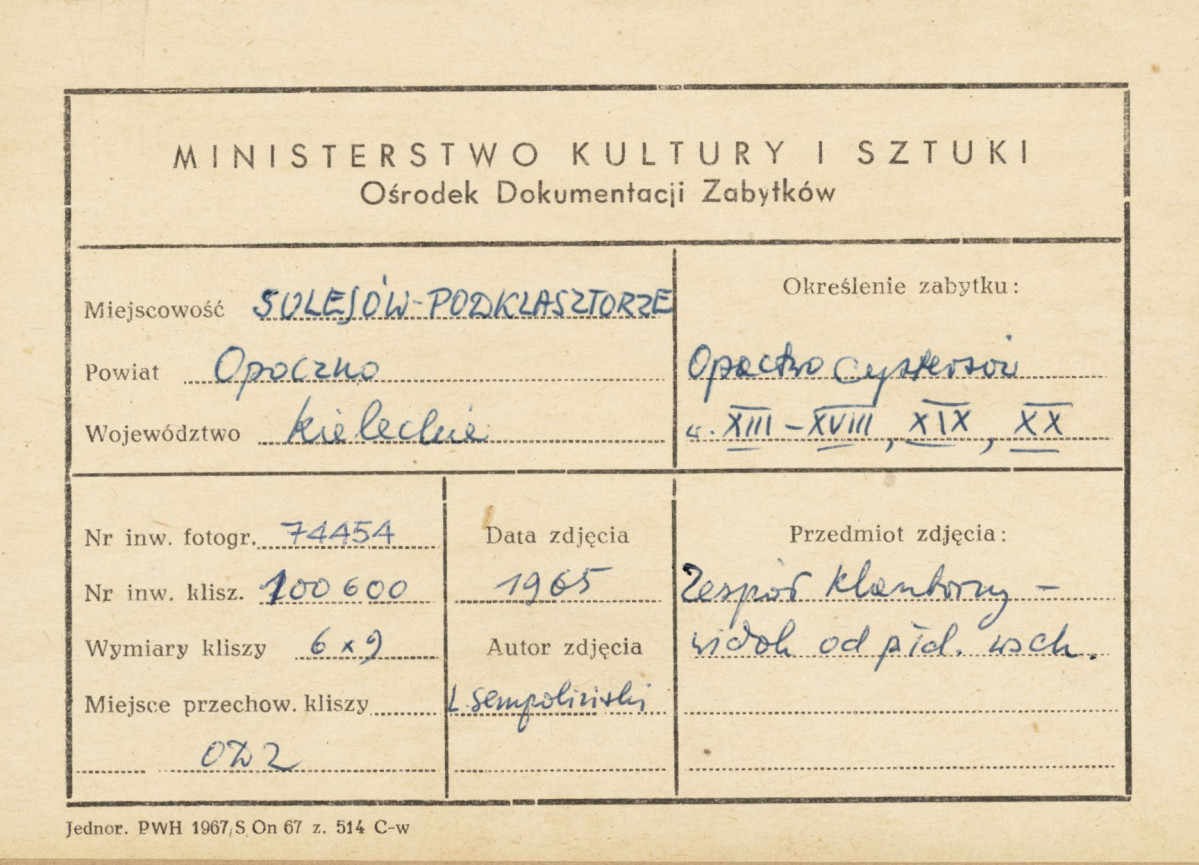 MINISTERSTWO KULTURY I SZTUKI
Ośrodek Dokumentacji Zabytków
Miejscowość SULEJÓW-PODKLASZTORZE
Powiat Opoczno
Województwo kieleckie
Określenie zabytku:
Opactwo cystersów
w. XIII – XVIII, XIX, XX
Nr inw. fotogr. 74454
Nr inw. klisz. 100600
Wymiary kliszy 6 x 9
Miejsce przechow. kliszy
Data zdjęcia
1965
Autor zdjęcia
L. Sempoliński
Przedmiot zdjęcia:
Zespół klasztorny –
widok od płd. wsch.
Jednor. PWH 1967/S On 67 z. 514 C-w